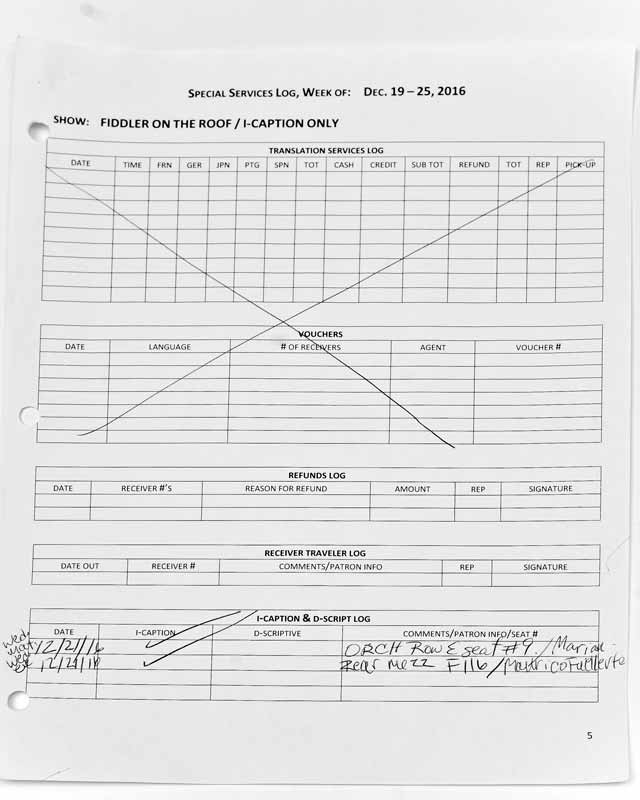 SPECIAL SERVICES LOG, WEEK OF: DEC. 19 – 25, 2016
SHOW: FIDDLER ON THE ROOF / I-CAPTION ONLY
TRANSLATION SERVICES LOG
DATE TIME FRN GER JPN PTG SPN TOT CASH CREDIT SUB TOT REFUND TOT REP PICK-UP
VOUCHERS
DATE LANGUAGE # OF RECEIVERS AGENT VOUCHER #
REFUNDS LOG
DATE RECEIVER #'S REASON FOR REFUND AMOUNT REP SIGNATURE
RECEIVER TRAVELER LOG
DATE OUT RECEIVER # COMMENTS/PATRON INFO REP SIGNATURE
I-CAPTION & D-SCRIPT LOG
DATE I-CAPTION D-SCRIPTIVE COMMENTS/PATRON INFO/SEAT #
Wed. mat 12/21/16 ORCH Row E seat #9. / Marian
Wed. 12/21/16 Rear mezz F116 /
5